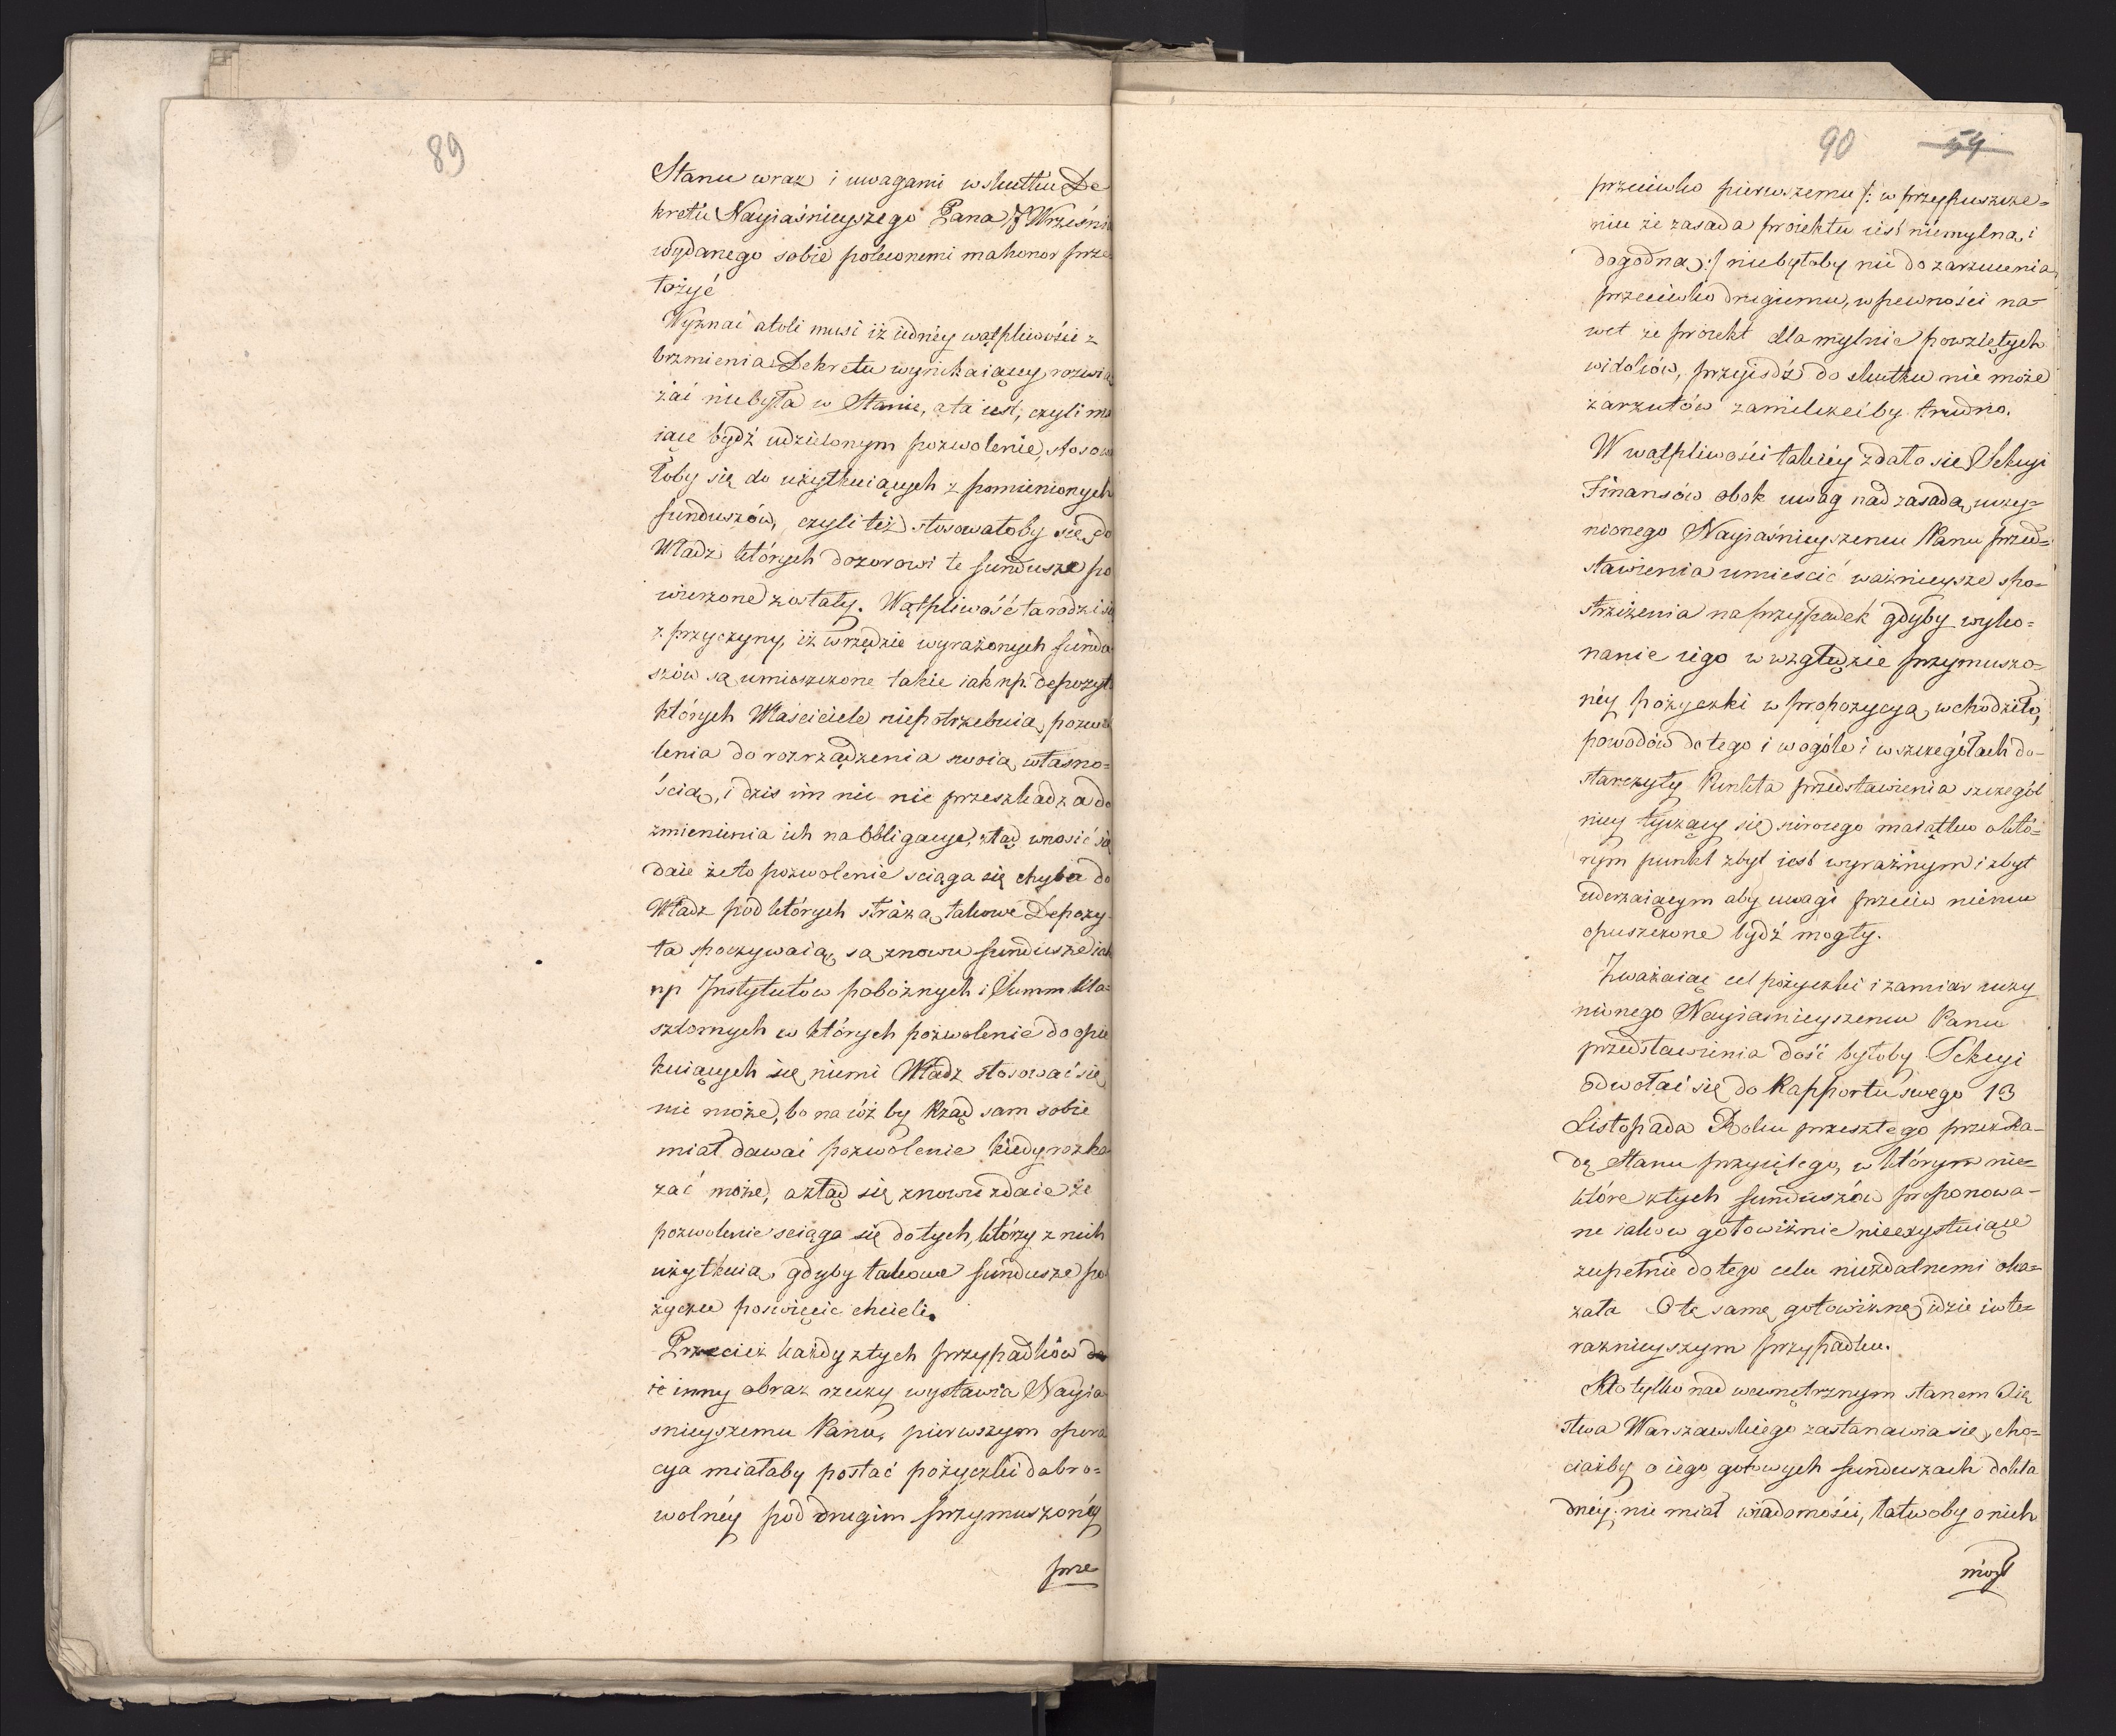 89
Stanu wraz i uwagami w skutku De
kretu Nayiaśnieyszego Pana 7 Wrześni
wydanego sobie poleconemi ma honor prze
łożyć
Wyznać atoli musi iż iedney wątpliwości z
brzmienia Dekretu wynikaiącey rozwią
zać niebyła w Stanie, a ta iest, czyli ma
iące bydź udzielonym pozwolenie, stosowa
łoby się do użytkuiących z pomienionych
funduszów, czyli też stosowałoby się do
Władz których dozorowi te fundusze po
wierzone zostały. Wątpliwość ta rodzi się
z przyczyny, iż w rzędzie wyrażonych fundu
szów są umieszczone takie iak np. depozyta
których Właściciele niepotrzebuią pozwo
lenia do rozrządzenia swoią własno=
ścią, i dziś im nic nie przeszkadza do
zmienienia ich na obligacye, ztąd wnosić się
daie że to pozwolenie sciąga się chyba do
Władz pod których strażą takowe Depozy-
ta spoczywaią, są znowu fundusze iak
np Instytutów pobożnych i Summ kla=
sztornych w których pozwolenie do opie
kuiących się niemi Władz stosować się
nie może, bo na cóż by Rząd sam sobie
miał dawać pozwolenie kiedy rozka
zać może, a ztąd się znowu zdaie że
pozwolenie sciąga się do tych, którzy z nich
użytkuią, gdyby takowe fundusze po
życzce poswięcić chcieli.
Przecież każdy z tych przypadków da
ie inny obraz rzeczy wystawia Nayia
snieyszemu Panu, pierwszym opera
cya miałaby postać pożyczki dobro=
wolnéy pod drugim przymuszonéy
prze
90 54
przeciwko pierwszemu /: w przypuszcze=
niu że zasada proiektu iest niemylna i
dogodna :/ niebyłoby nic do zarzucenia
przeciwko drugiemu, w pewności na=
wet że proiekt dla mylnie powziętych
widoków, przyiśdź do skutku nie może
zarzutów zamilczećby trudno.
W wątpliwości takiéy zdało się Sekcyi
Finansów obok uwag nad zasadą uczy=
nionego Nayiaśnieyszemu Panu przed=
stawienia umiescić ważnieysze spo=
strzeżenia na przypadek gdyby wyko=
nanie iego w względzie przymuszo=
néy pożyczki w propozycyą wchodziło,
powodów do tego i w ogóle i w szczegółach do-
starczyły Punkta przedstawienia szczegól
niey tyczący się nirowego maiątku o któ=
rym punkt zbyt iest wyraźnym i zbyt
uderzaiącym aby uwagi przeciw niemu
opuszczone bydź mogły.
Zważaiąc cel pożyczki i zamiar uczy
nionego Nayiasnieyszemu Panu
przedstawienia dość byłoby Sekcyi
odwołać się do Rapportu swego 13
Listopada Roku przeszłego przez Ra-
dę Stanu przyiętego, w którym nie=
które z tych funduszów proponowa-
ne iako w gotowiźnie nieexystuiące
zupełnie do tego celu niezdatnemi oka=
zała O tę samę gotowiznę idzie i w te=
raznieyszym przypadku.
Kto tylko nad wewnętrznym stanem Xię
stwa Warszawskiego zastanawia się, cho=
ciażby o iego gotowych funduszach dokła
dnéy nie miał wiadomości, łatwoby o nich
mógł